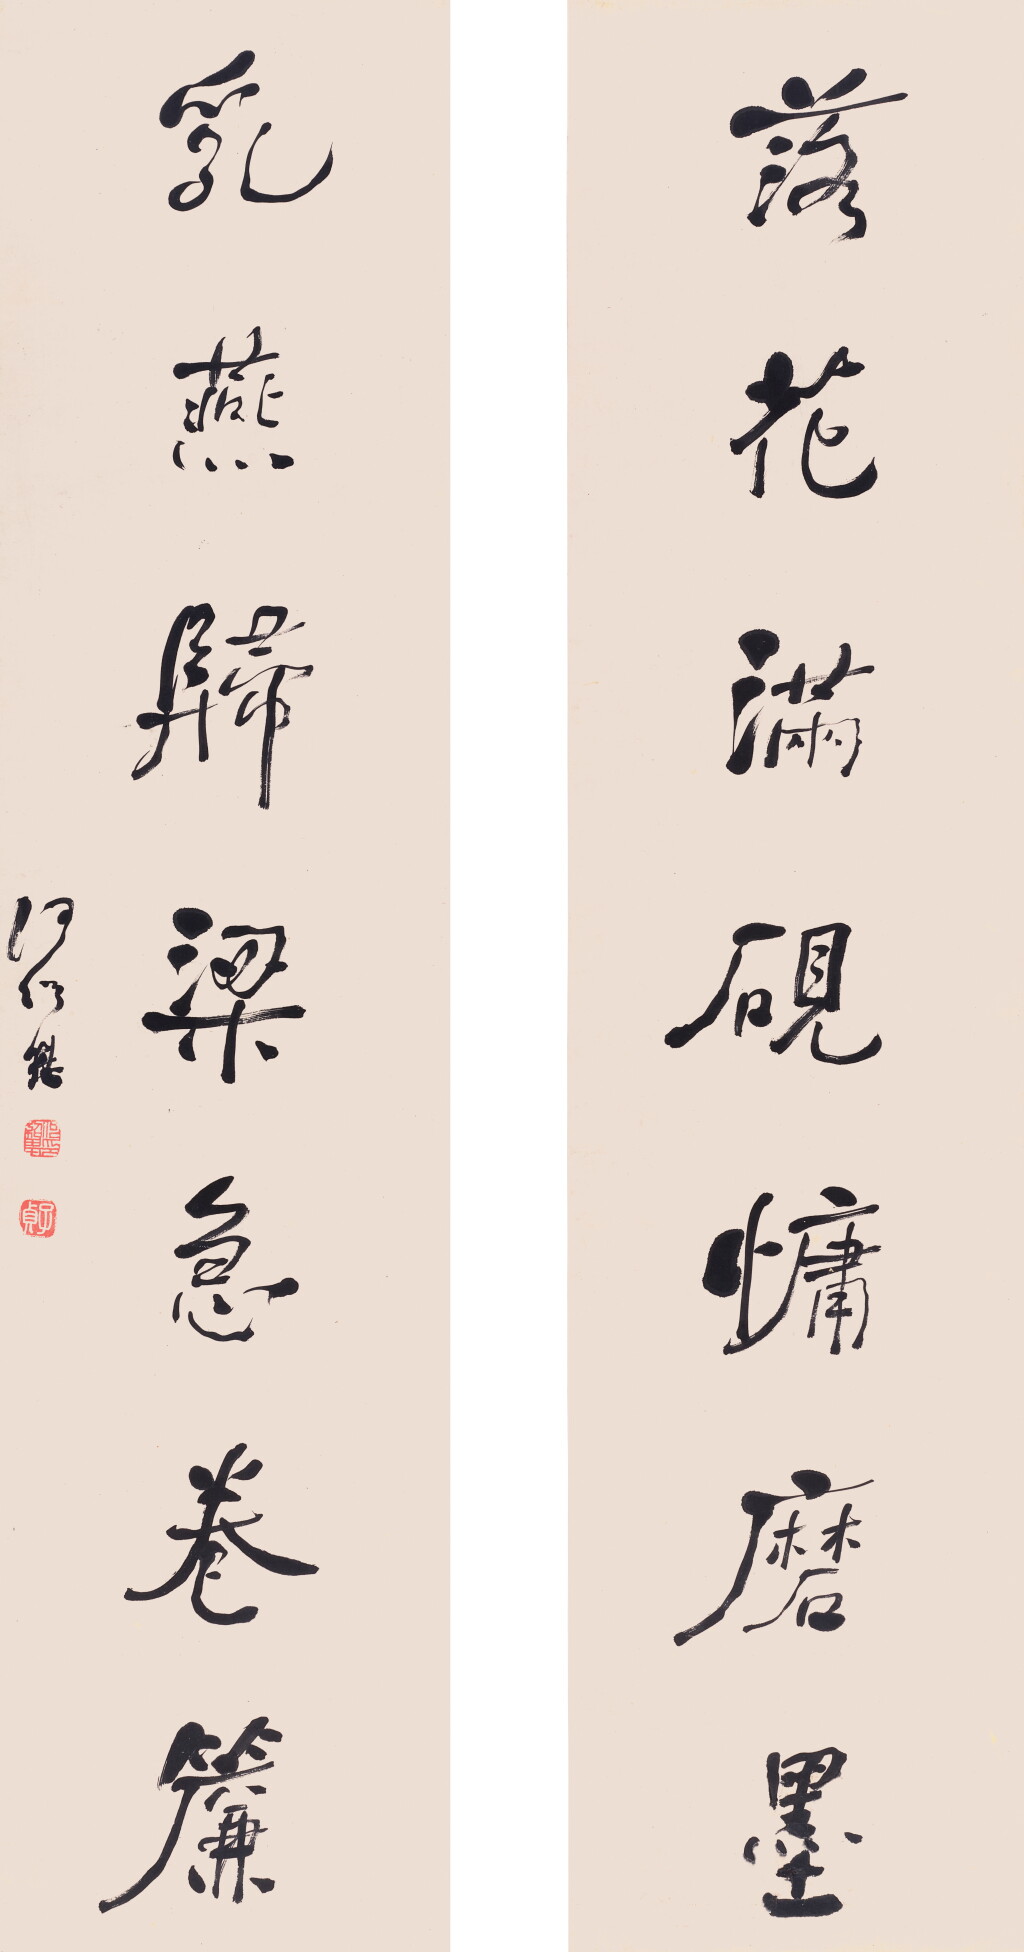 落花滿硯慵磨墨
乳燕歸梁急卷簾
何紹基
子貞